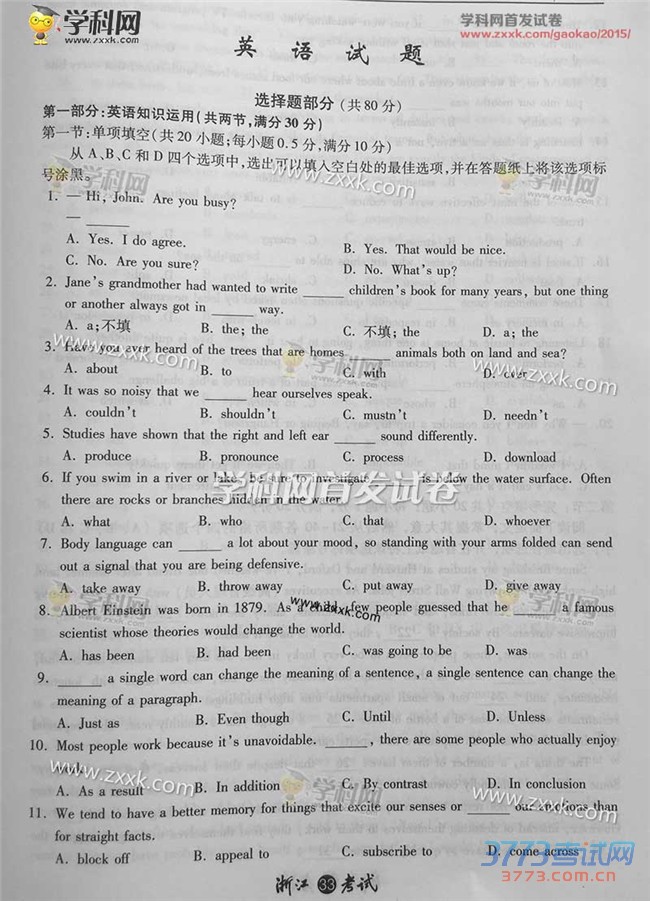 学科网
www.zxxk.com
学科网首发试卷
www.zxxk.com/gaokao/2015/
英 语 试 题
选择题部分(共80分)
第一部分:英语知识运用(共两节,满分30分)
第一节:单项填空(共20小题;每小题0.5分,满分10分)
从A、B、C和D四个选项中,选出可以填入空白处的最佳选项,并在答题纸上将该选项标
号涂黑。
1. — Hi, John. Are you busy?
— ______
A. Yes. I do agree. B. Yes. That would be nice.
C. No. Are you sure? D. No. What's up?
2. Jane's grandmother had wanted to write ______ children's book for many years, but one thing
or another always got in ______ way.
A. a;不填 B. the; the C. 不填; the D. a; the
3. Have you ever heard of the trees that are homes ______ animals both on land and sea?
A. about B. to C. with D. over
4. It was so noisy that we ______ hear ourselves speak.
A. couldn't B. shouldn't C. mustn't D. needn't
5. Studies have shown that the right and left ear ______ sound differently.
A. produce B. pronounce C. process D. download
6. If you swim in a river or lake, be sure to investigate ______ is below the water surface. Often
there are rocks or branches hidden in the water.
A. what B. who C. that D. whoever
7. Body language can ______ a lot about your mood, so standing with your arms folded can send
out a signal that you are being defensive.
A. take away B. throw away C. put away D. give away
8. Albert Einstein was born in 1879. As a child, few people guessed that he ______ a famous
scientist whose theories would change the world.
A. has been B. had been C. was going to be D. was
9. ______ a single word can change the meaning of a sentence, a single sentence can change the
meaning of a paragraph.
A. Just as B. Even though C. Until D. Unless
10. Most people work because it's unavoidable. ______, there are some people who actually enjoy
work.
A. As a result B. In addition C. By contrast D. In conclusion
11. We tend to have a better memory for things that excite our senses or ______ our emotions than
for straight facts.
A. block off B. appeal to C. subscribe to D. come across
浙江 33 考试
3773考试网
3773.com.cn